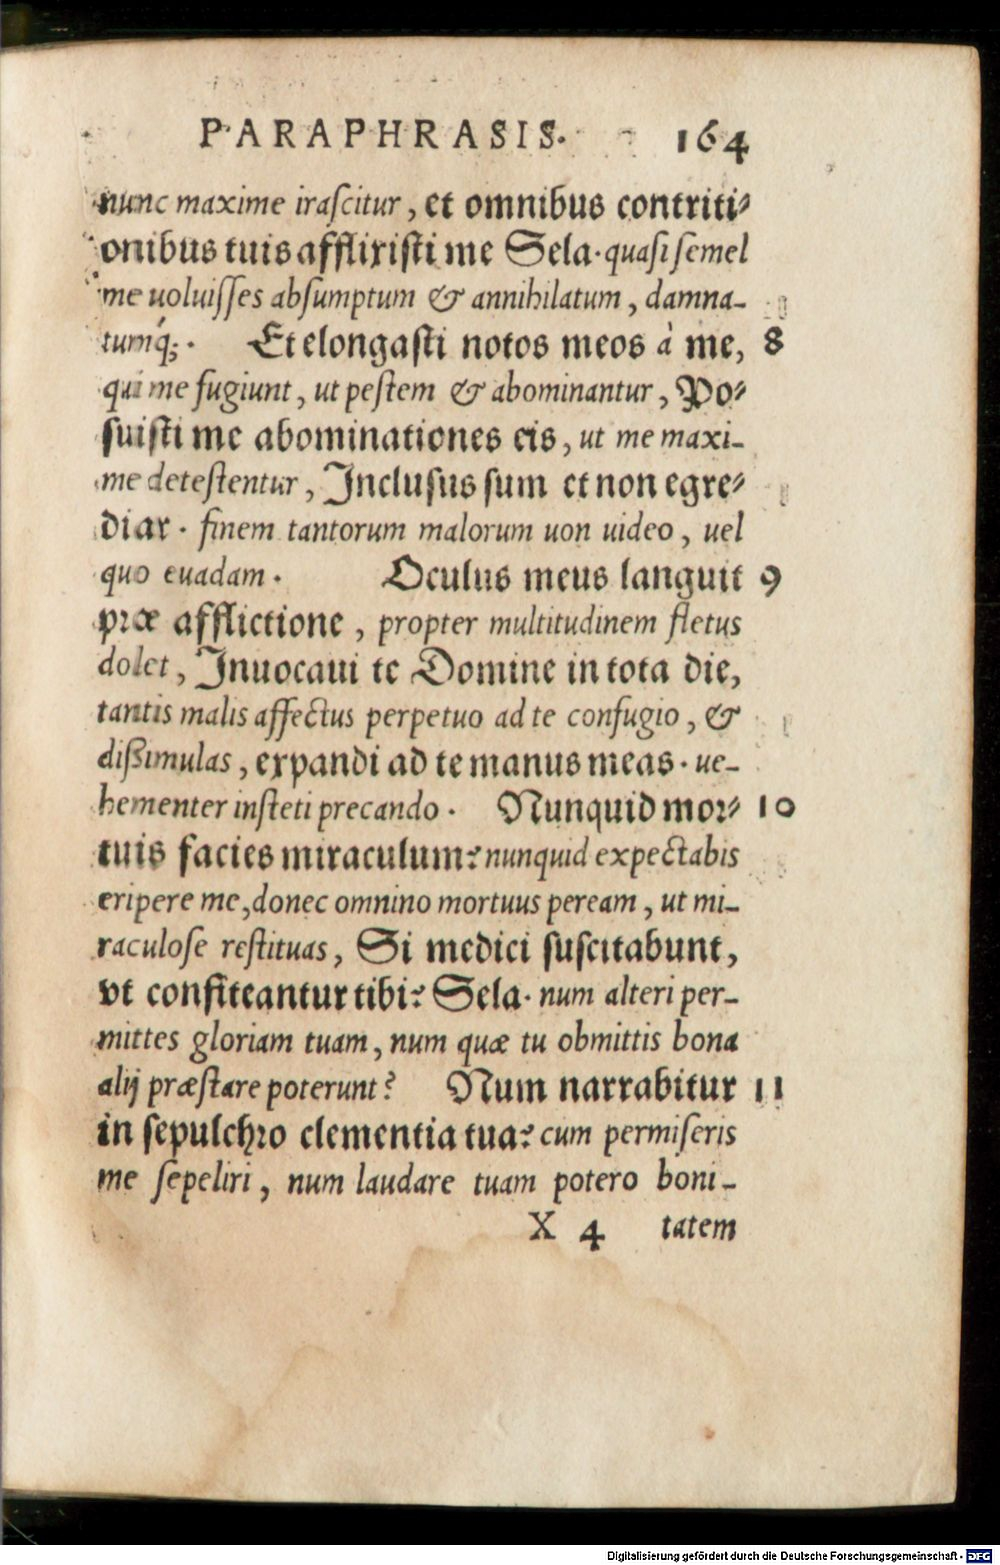 PARAPHRASIS. 164
nunc maxime iraſcitur, et omnibus contriti⸗
onibus tuis afflixiſti me Sela. quaſi ſemel
me uoluiſſes abſumptum & annihilatum, damna-
tumq́;. Et elongaſti notos meos à me, 8
qui me fugiunt, ut peſtem & abominantur, Po⸗
ſuiſti me abominationes eis, ut me maxi-
me deteſtentur, Incluſus ſum et non egre⸗
diar. finem tantorum malorum uon uideo, uel
quo euadam. Oculus meus languit 9
præ afflictione, propter multitudinem fletus
dolet, Inuocaui te Domine in tota die,
tantis malis affectus perpetuo ad te confugio, &
dißimulas, expandi ad te manus meas. ue-
hementer inſteti precando. Nunquid mor⸗ 10
tuis facies miraculum? nunquid expectabis
eripere me, donec omnino mortuus peream, ut mi-
raculoſe reſtituas, Si medici ſuſcitabunt,
vt confiteantur tibi? Sela. num alteri per-
mittes gloriam tuam, num quæ tu obmittis bona
alij præſtare poterunt? Num narrabitur 11
in ſepulchro clementia tua? cum permiſeris
me ſepeliri, num laudare tuam potero boni-
X 4 tatem
Digitalisierung gefördert durch die Deutsche Forschungsgemeinschaft - DFG